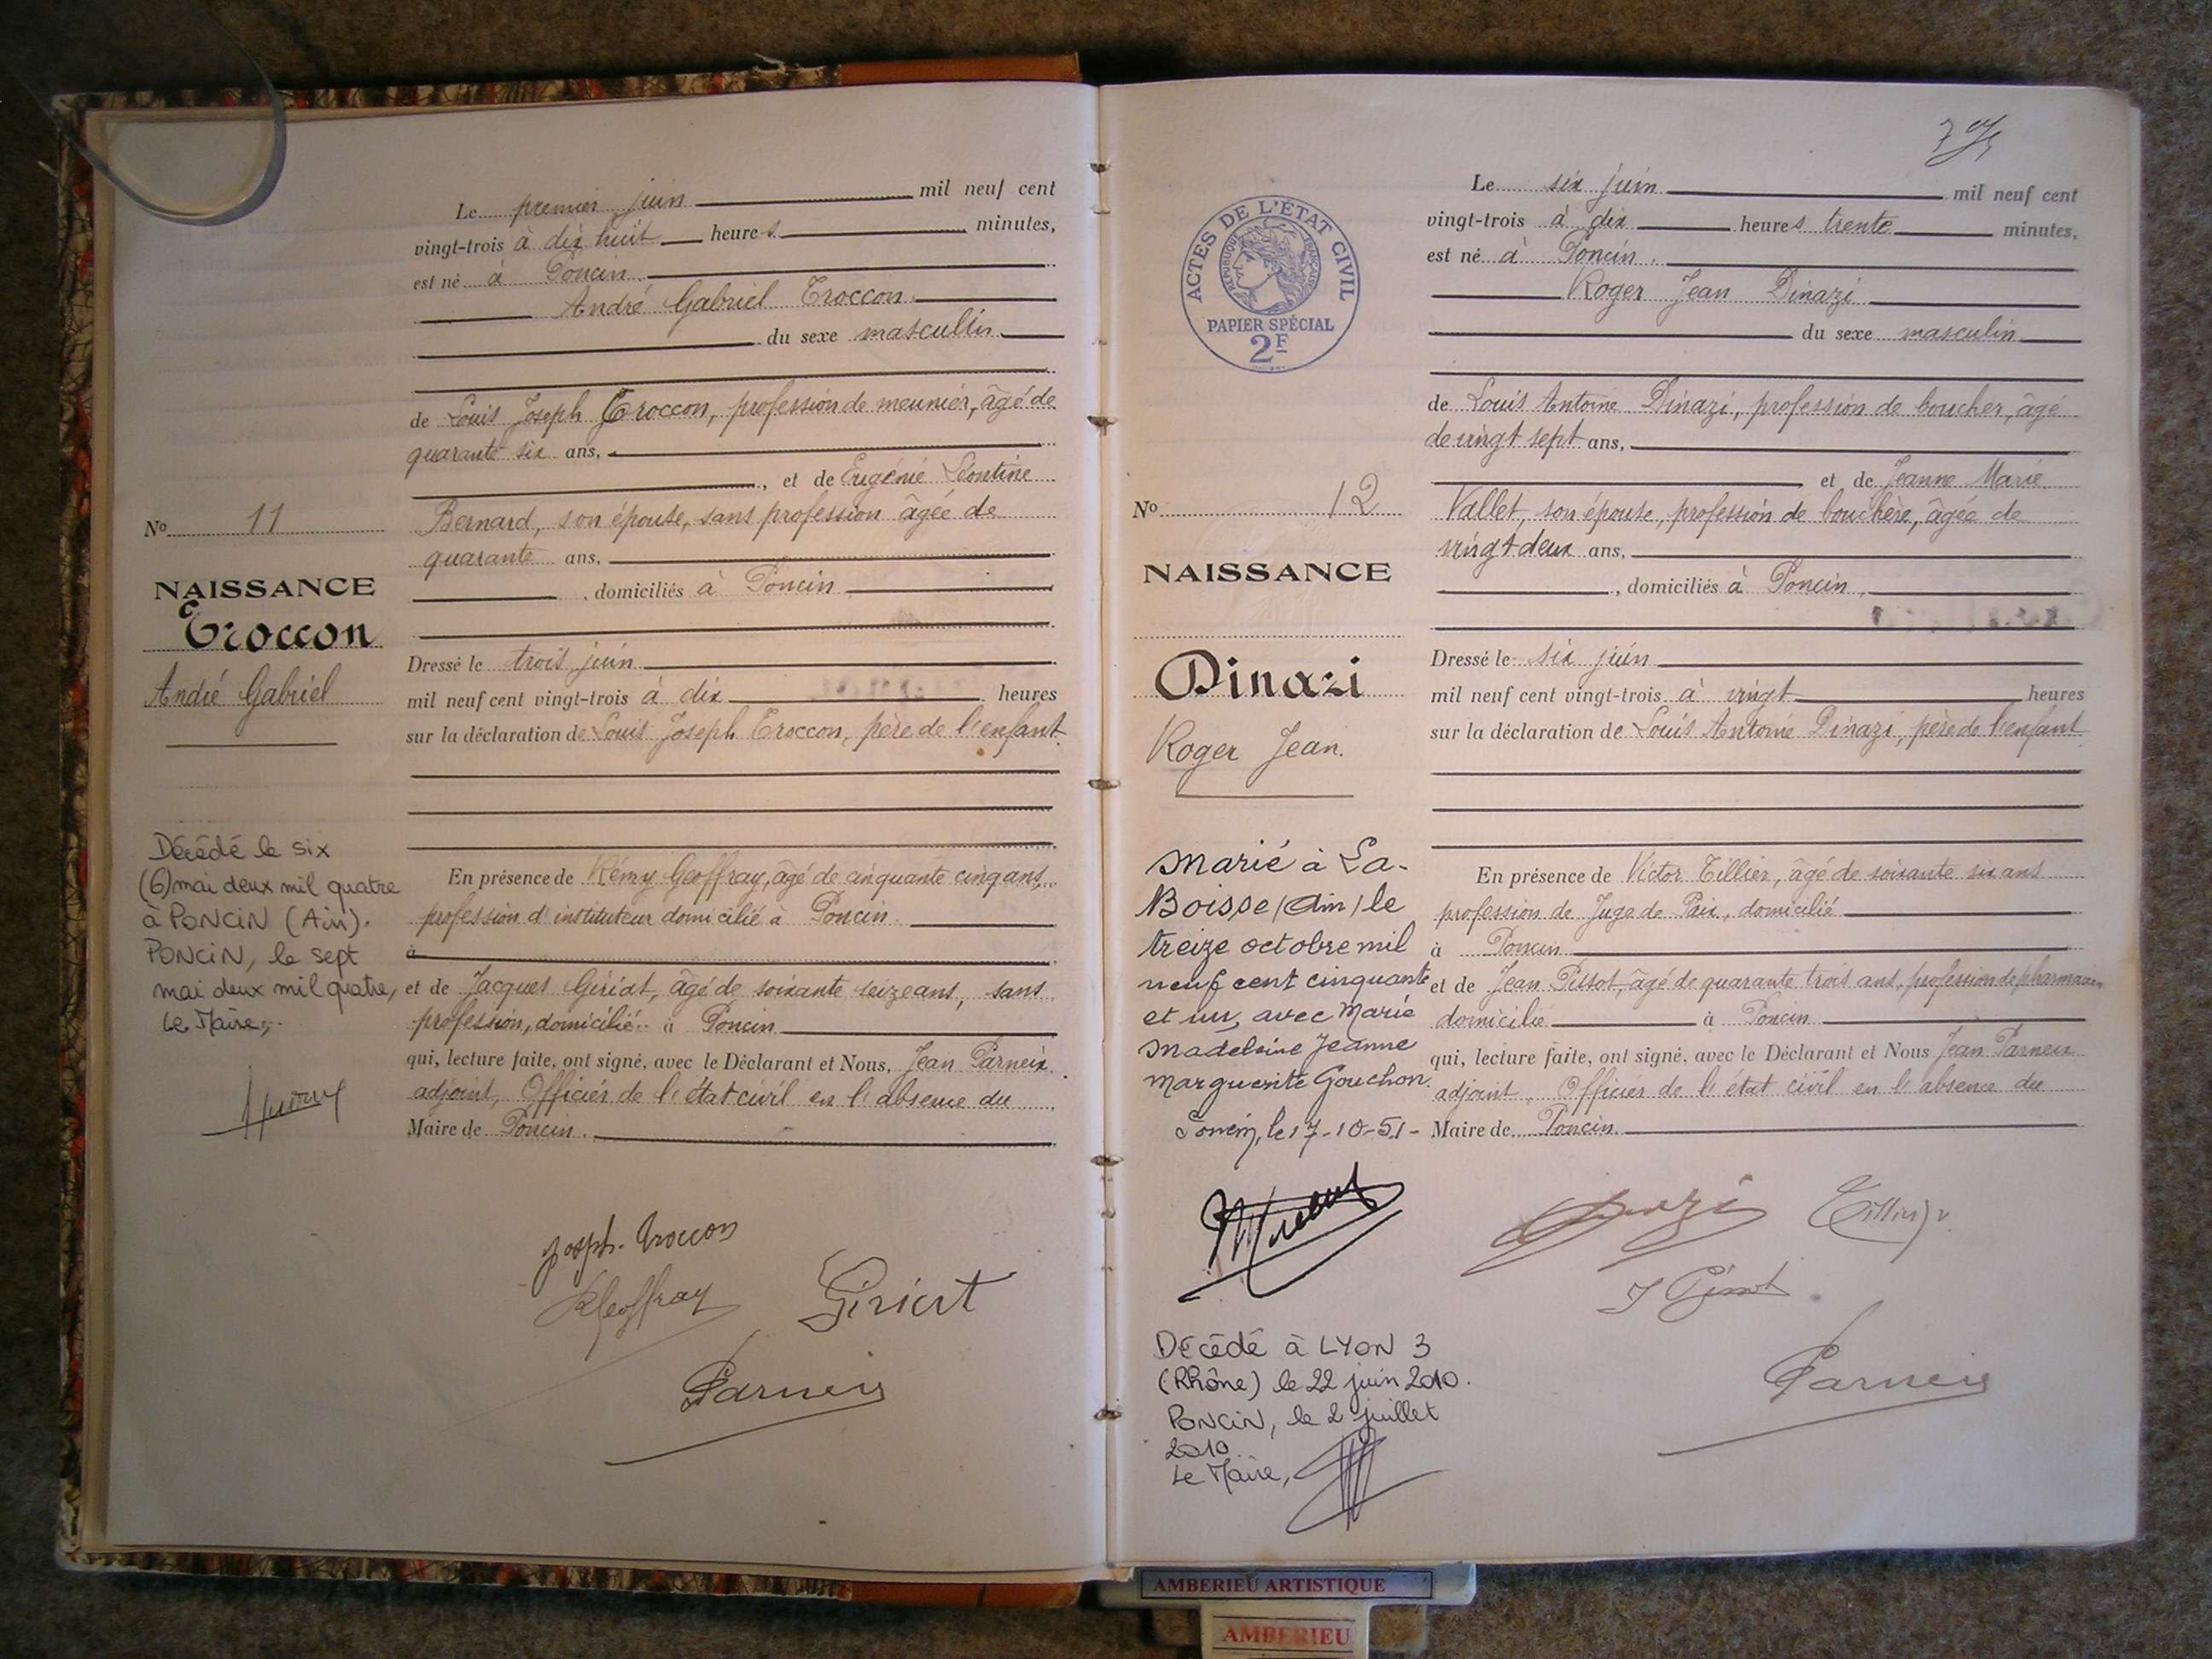 Le premier juin mil neuf cent
vingt-trois à dix huit heures minutes,
est né à Poncin
André Gabriel Troccon
du sexe masculin
de Louis Joseph Troccon, profession de meunier, âgé de
quarante six ans,
, et de Eugénie Léontine
Bernard, son épouse, sans profession âgée de
quarante ans,
, domiciliés à Poncin
Dressé le trois juin
mil neuf cent vingt-trois à dix heures
sur la déclaration de Louis Joseph Troccon, père de l'enfant
En présence de Rémy Geoffray, âgé de cinquante cinq ans
profession d'instituteur domicilié à Poncin
à
et de Jacques Giriat, âgé de soixante seize ans, sans
profession, domicilié à Poncin
qui, lecture faite, ont signé, avec le Déclarant et Nous, Jean Parneix
adjoint, Officier de l'état civil en l'absence du
Maire de Poncin.
Joseph Troccon
RGeoffray
Giriat
Parneix
No 11
NAISSANCE
Troccon
André Gabriel
Décédé le six
(6) mai deux mil quatre
à PONCIN (Ain).
PONCIN, le sept
mai deux mil quatre,
Le Maire,
ACTES DE L'ÉTAT CIVIL
RÉPUBLIQUE FRANÇAISE
PAPIER SPÉCIAL
2F
Le six juin mil neuf cent
vingt-trois à dix heures trente minutes,
est né à Poncin.
Roger Jean Dinazi
du sexe masculin
de Louis Antoine Dinazi, profession de boucher, âgé
de vingt sept ans,
et de Jeanne Marie
Vallet, son épouse, profession de bouchère, âgée de
vingt deux ans,
, domiciliés à Poncin,
Dressé le six juin
mil neuf cent vingt-trois à vingt heures
sur la déclaration de Louis Antoine Dinazi, père de l'enfant
En présence de Victor Tillier, âgé de soixante six ans
profession de Juge de Paix, domicilié
à Poncin
et de Jean Pissot, âgé de quarante trois ans, profession de pharmacien
domicilié à Poncin
qui, lecture faite, ont signé, avec le Déclarant et Nous Jean Parneix
adjoint, Officier de l'état civil en l'absence du
Maire de Poncin
Dinazi
Tillier
J Pissot
Parneix
No 12
NAISSANCE
Dinazi
Roger Jean.
Marié à La-
Boisse (Ain) le
treize octobre mil
neuf cent cinquante
et un, avec Marie
Madeleine Jeanne
Marguerite Gouchon.
Poncin, le 17-10-51-
Décédé à LYON 3
(Rhône) le 22 juin 2010.
PONCIN, le 2 juillet
2010
Le Maire,
AMBERIEU ARTISTIQUE
AMBERIEU